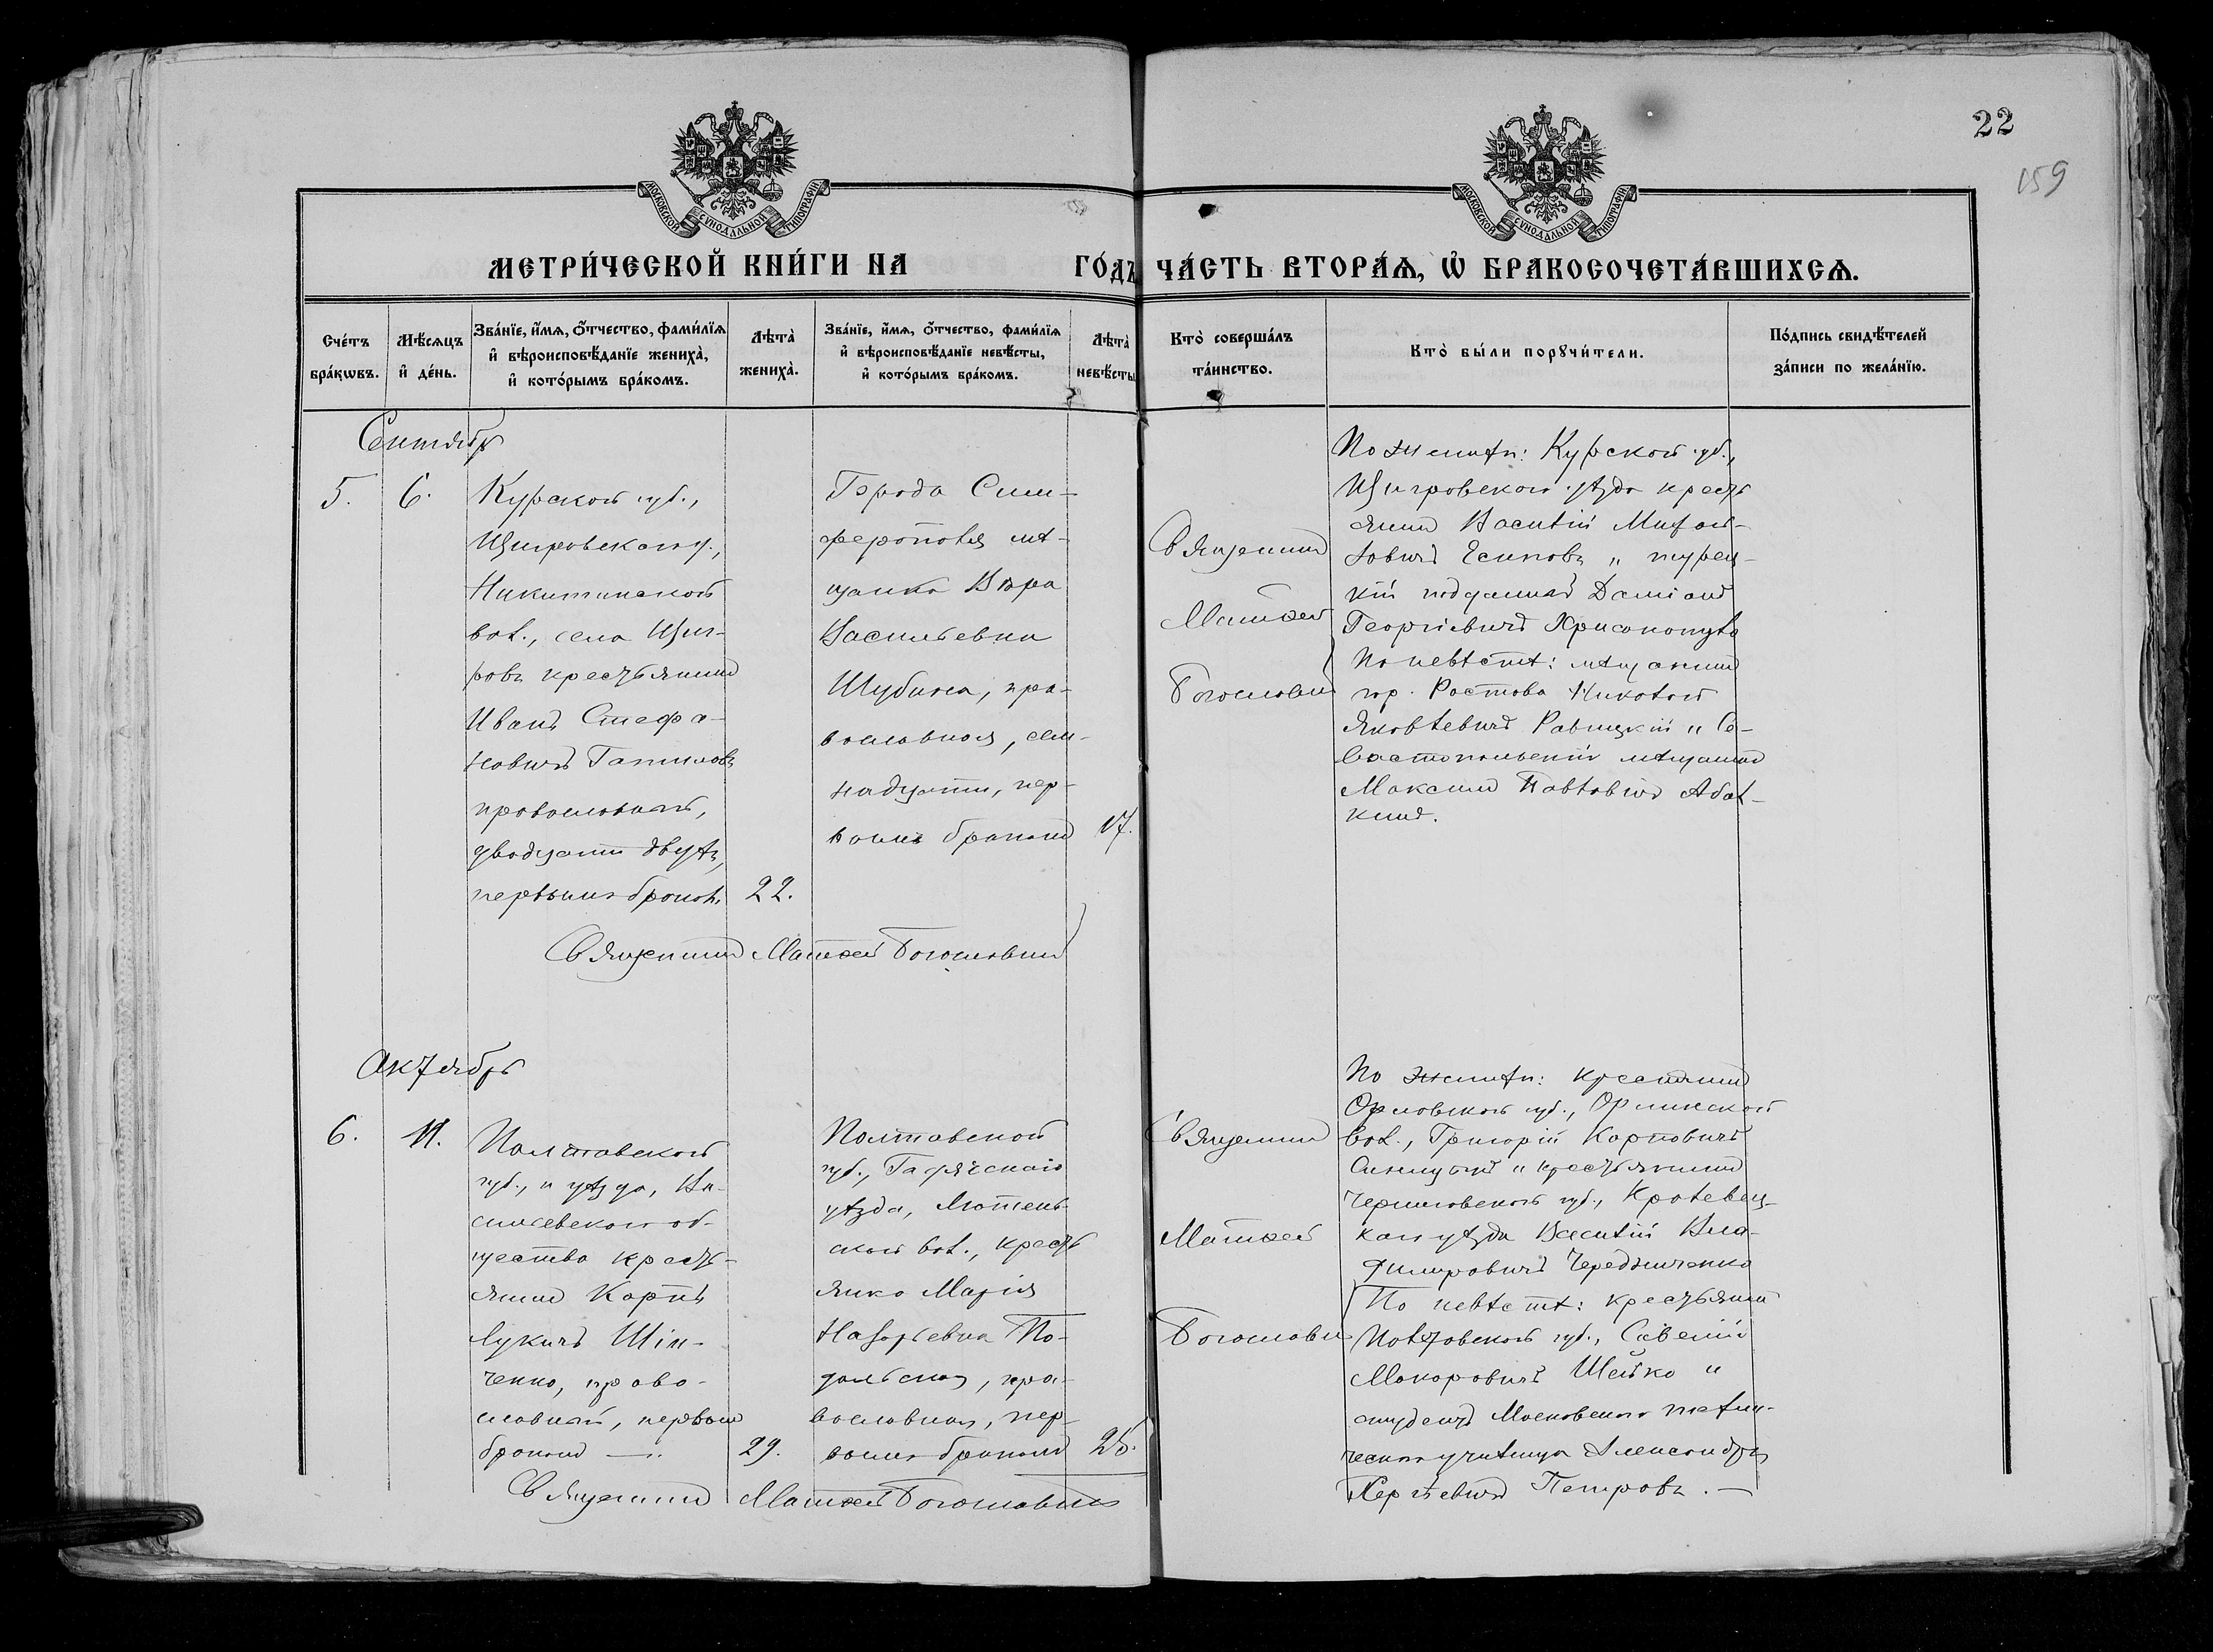 22
159
МОСКОВСКОЙ СУНОДАЛЬНОЙ ТИПОГРАФІИ
МОСКОВСКОЙ СУНОДАЛЬНОЙ ТИПОГРАФІИ
МЕТРИ́ЧЕСКОЙ КНИ́ГИ НА ГО́ДЪ
ЧА́СТЬ ВТОРА́Ѧ, Ѽ БРАКОСОЧЕТА́ВШИХСѦ.
Сче́тъ
бра́кѡвъ.
Мѣ́сѧцъ
и҆ де́нь.
Зва́нїе, и҆́мѧ, ѻ҆́тчество, фами́лїѧ
и҆ вѣроисповѣ́данїе жениха̀,
и҆ кото́рымъ бра́комъ.
Лѣта̀
жениха̀.
Зва́нїе, и҆́мѧ, ѻ҆́тчество, фами́лїѧ
и҆ вѣроисповѣ́данїе невѣ́сты,
и҆ кото́рымъ бра́комъ.
Лѣта̀
невѣ́сты
Кто̀ соверша́лъ
та́инство.
Кто̀ бы́ли порꙋчи́тели.
По́дпись свидѣ́телей
за́писи по жела́нїю.
Сентябрь
5.
6.
Курской губ.,
Щигровскаго у.,
Никитинской
вол., села Щиг-
ровъ крестьянинъ
Иванъ Стефа-
новичъ
православный,
двадцати двухъ,
первымъ бракомъ
22.
Города Сим-
ферополя мѣ-
щанка Вѣра
Васильевна
Шубина, пра-
вославная, сем-
надцати, пер-
вымъ бракомъ
17.
Священникъ
Матѳей
Богословскій
По женихѣ: Курской губ.,
Щигровскаго уѣзда кресть
янинъ Василій Михай-
ловичъ Есиповъ и турец-
кій подданный Даміанъ
Георгіевичъ Хрисопопуло
По невѣстѣ: мѣщанинъ
гор. Ростова Николай
Яковлевичъ Равицкій и Се-
вастопольскій мѣщанинъ
Максимъ Павловичъ Абал-
кинъ.
Священникъ Матѳей Богословскій
Октябрь
6.
11.
Полтавской
губ., и уѣзда, Ва-
сильевскаго об-
щества кресть-
янинъ Карпъ
Лукичъ Шин-
ченко, право-
славный, первымъ
бракомъ
29.
Полтавской
губ., Гадячскаго
уѣзда, Лютень-
ской вол., кресть
янка Марія
Назарьевна По-
дольская, пра-
вославная, пер-
вымъ бракомъ
Священникъ
Матѳей
Богословскій
По женихѣ: крестьянинъ
Орловской губ., Орлинской
вол., Григорій Карповичъ
и крестьянинъ
Черниговской губ., Кролевец-
каго уѣзда Василій Вла-
димировичъ Чередниченко
По невѣстѣ: крестьянинъ
Полтавской губ., Савелій
Макаровичъ Шейко и
студентъ Московскаго техни-
ческаго училища Александръ
Сергѣевичъ Петровъ.
Священникъ Матѳей Богословскій